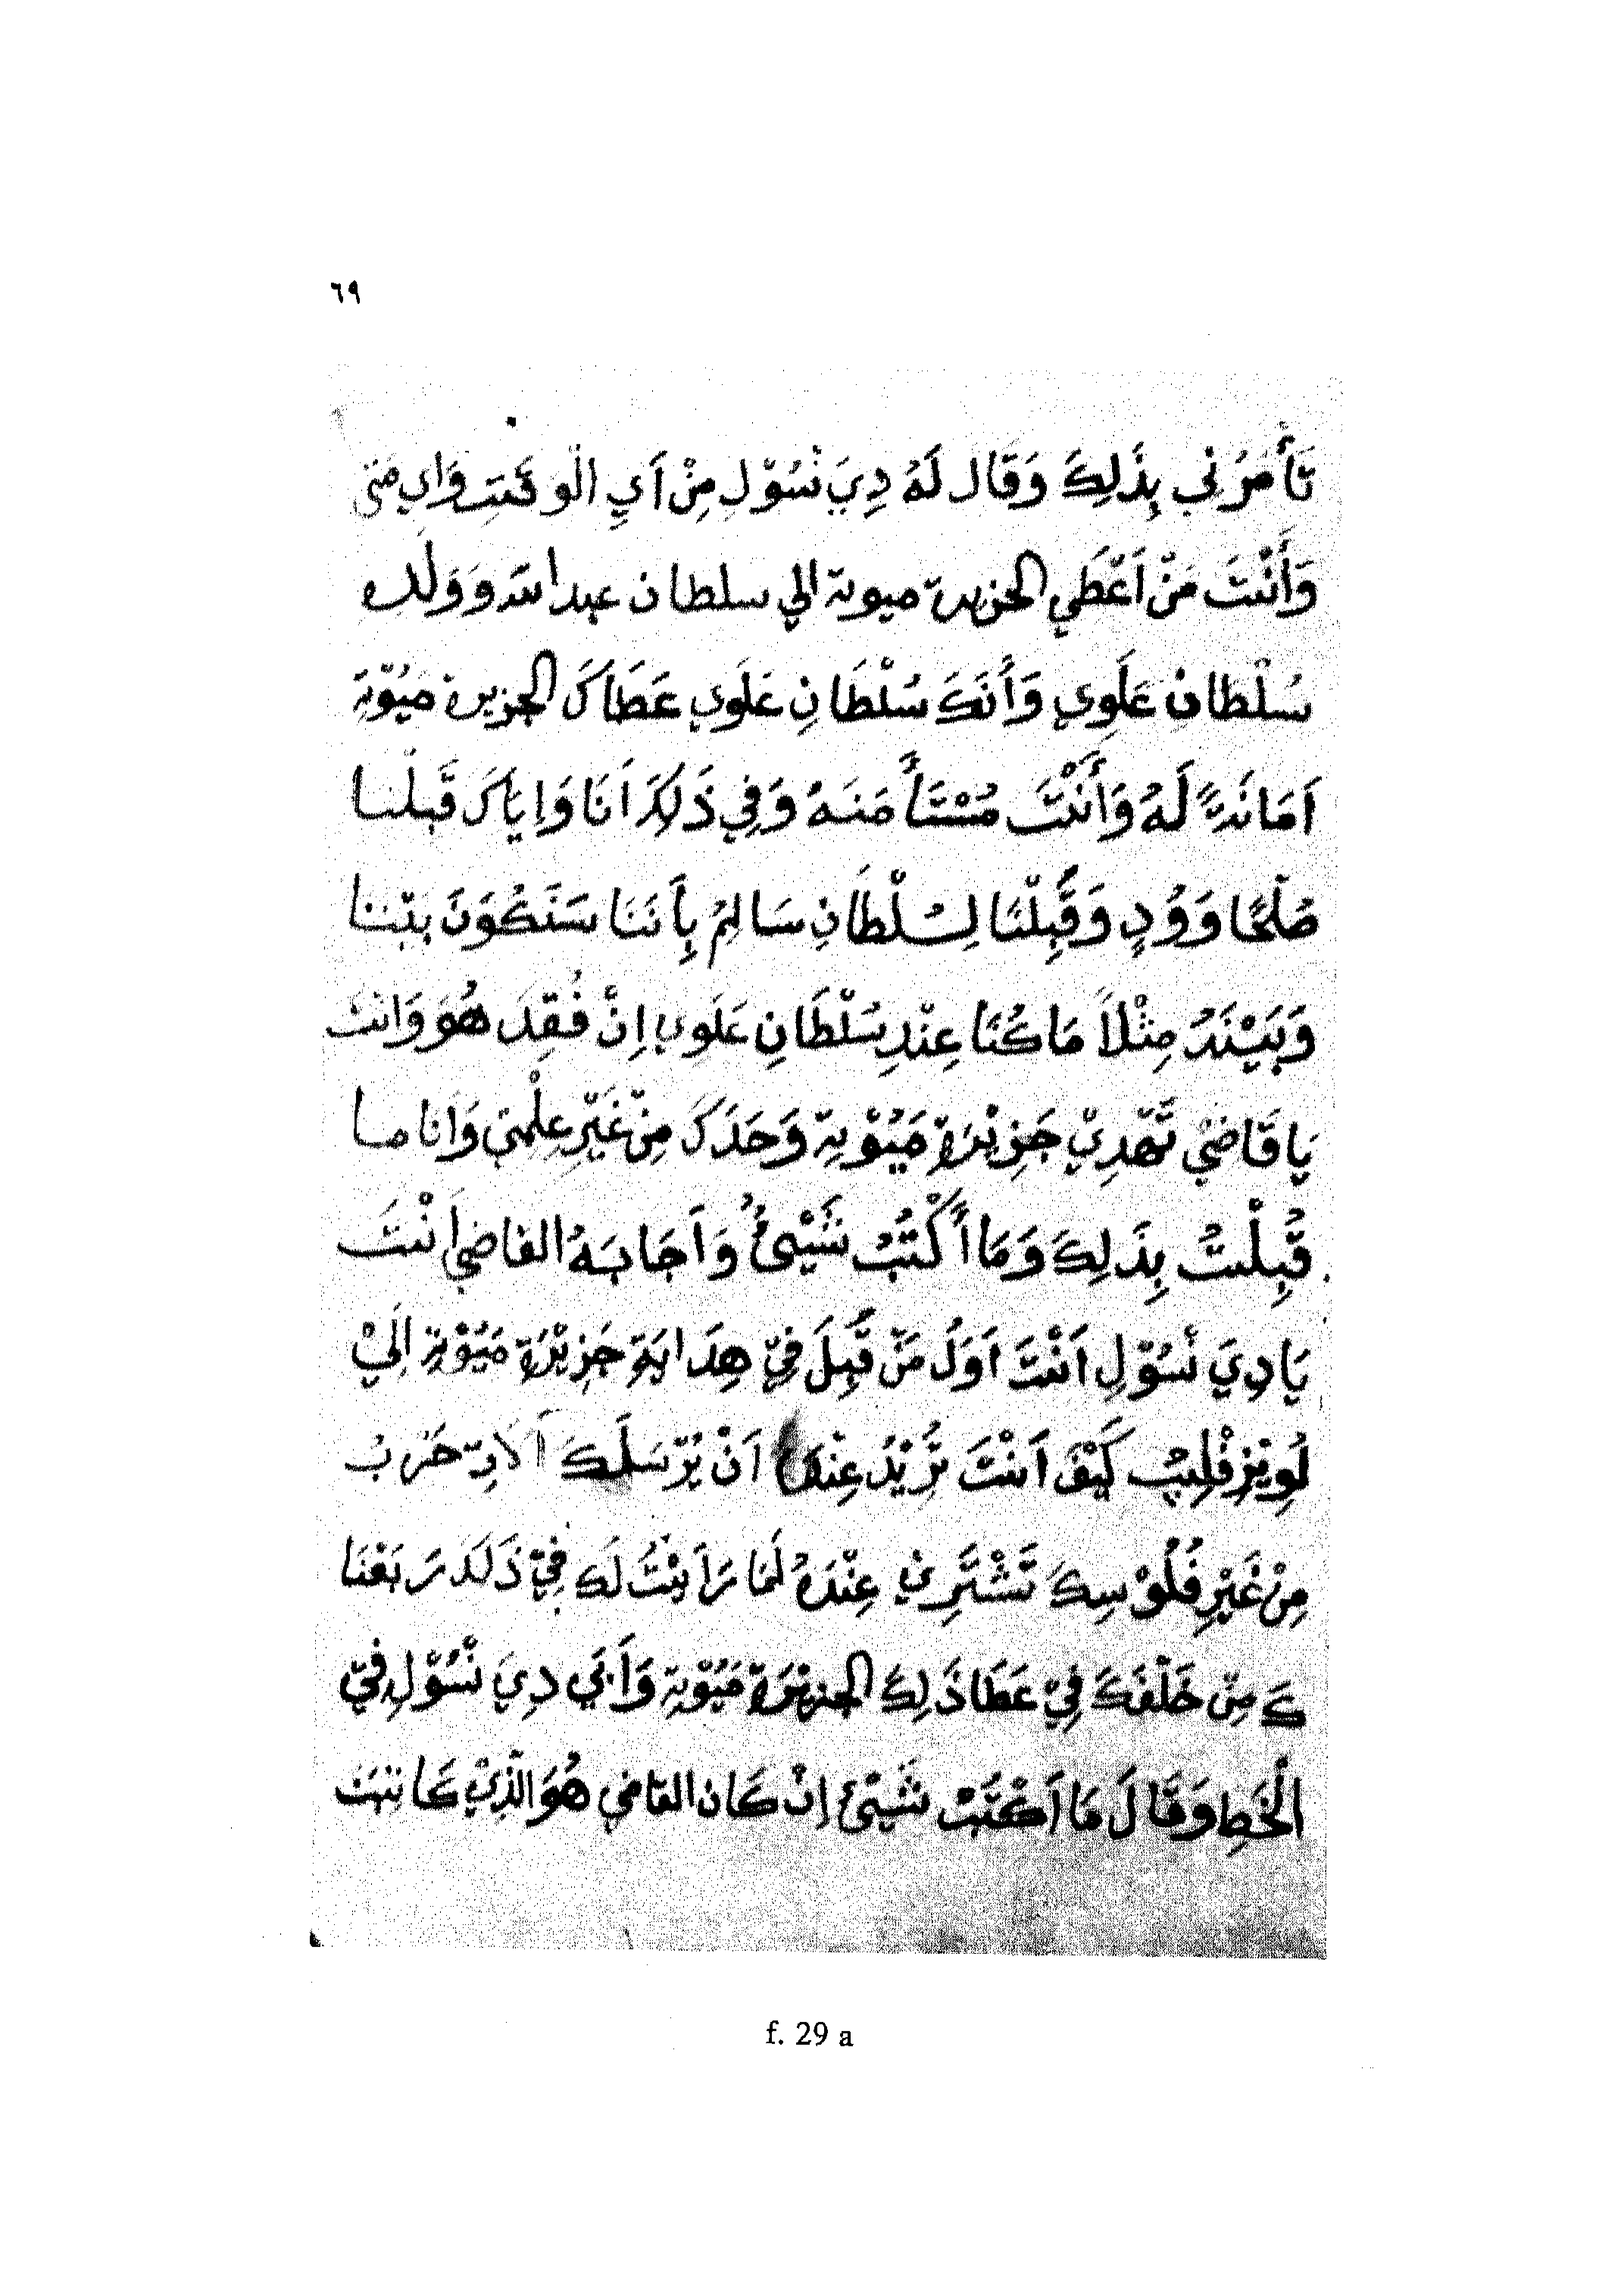 ٦٩
تَأْمُرُنِي بِذَلِكَ وَقَال لَهُ دِيَ نْسُوْلِ مِنْ اَيِ الْوَقَتِ وَاي مَتى
وَأَنْتَ مَنْ اَعْطَي الجزيرة ميوتة الي سلطان عبد الله وَوَلَده
سُلْطان عَلَوِي وَأَنَكَ سُلْطَانِ عَلَوِي عَطَاكَ الجزيرة مَيُوْتِة
اَمَانَةً لَهُ وَأَنْتَ مُسْتَأْمَنَهُ وَفِي ذَلِكَ اَنَا وَاِيَاكَ قَبِلْنا
صُلْحًا وَوُدٍ وَقَبِلْنَا لِسُلْطَانِ سَالِمُ بِأَنَنَا سَنَكُوَنَ بَيْنَنا
وَبَيْنَهُ مِثْلاَ مَا كُنَا عِنْدِ سُلْطَانِ عَلَوِي اِنْ فُقِدَ هُوَ وَانْتَ
يَا قَاضِيْ تَهْدِيْ جَزِيْرَة مَيُوْتِة وَحَدَكَ مِنْ غَيْرِ عِلْمِيْ وَاَنا ما
قَبِلْتُ بِذَلِكَ وَمَا أَكْتُبُ شَيْئُ وَاَجَابَهُ القاضي اَنْتَ
يَا دِيَ نْسُوْلِ اَنْتَ اَوَلُ مَنْ قَبِلَ فِيْ هِدَايَةِ جَزِيْرَة مَيُوْتِة اِلَيْ
لُوِيْز فْلِيبُ كَيْفَ اَنْتَ تُرِيْدُ عِنْدَهُ اَنْ يُرْسَلَكَ اَلاَدِ حَرْبُ
مِنْ غَيْرِ فُلُوْسِكَ تَشْتَرِي عِنْدَهُ لَمَا رَاَيْتُ لَكَ فِيْ ذَلَكَ رَبَعْنَا
كَ مِنْ خَلْفَكَ فِيْ عَطَا ذَلِكَ الجزِيْرَة مَيُوْتِة وَأَبَي دِيَ نْسُوْلِ فِيْ
الْخَطِ وَقَالَ مَا اَكْتُبْ شَيْئ اِنْ كَان القاضي هُوَ الَّذِيْ كَا تبت
f. 29 a